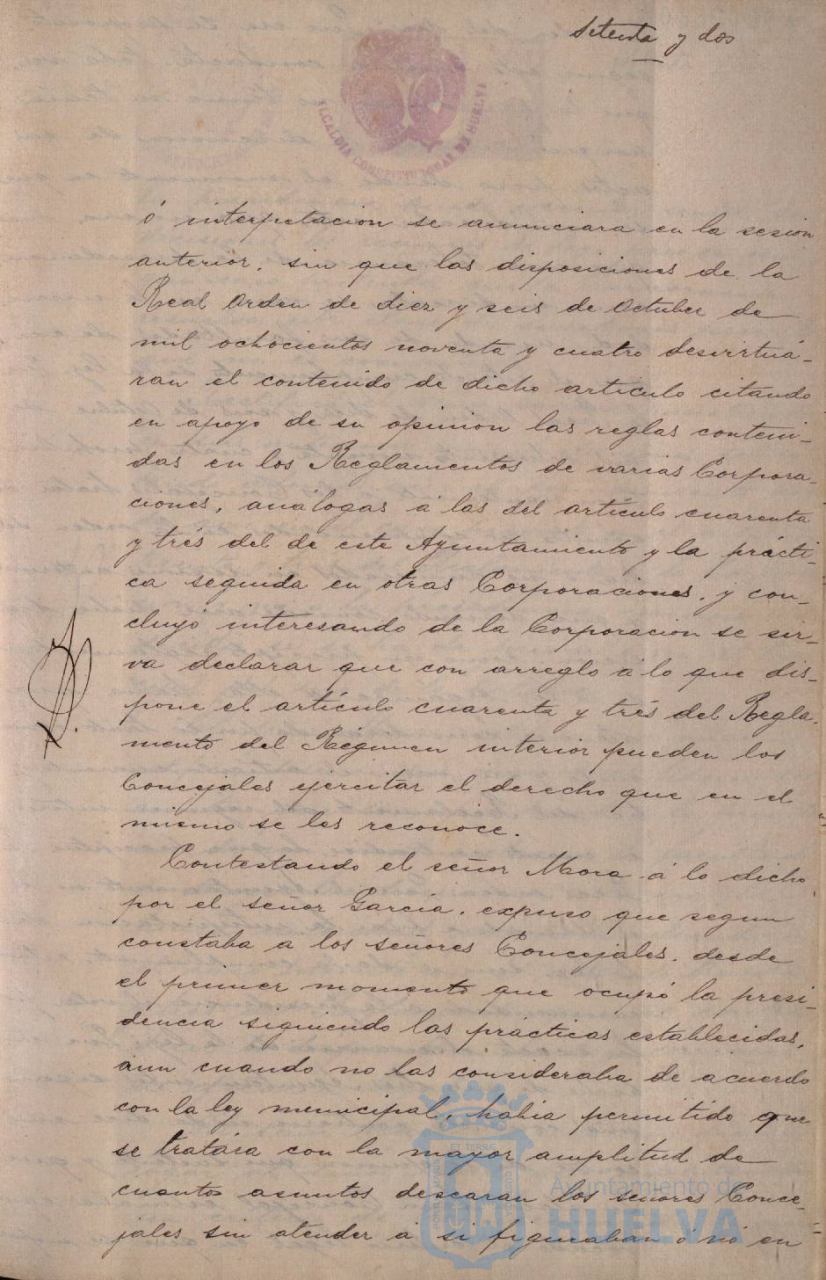 setenta y dos
ALCALDIA CONSTITUCIONAL DE HUELVA
ó interpretacion se anunciara en la sesion
anterior, sin que las disposiciones de la
Real Orden de diez y seis de Octuber de
mil ochocientos noventa y cuatro desvirtuá-
ran el contenido de dicho articulo citando
en apoyo de su opinion las reglas conteni-
das en los Reglamentos de varias Corpora-
ciones, análogas á las del artículo cuarenta
y trés del de este Ayuntamiento y la prácti-
ca seguida en otras Corporaciones, y con-
cluyó interesando de la Corporacion se sir-
va declarar que con arreglo á lo que dis-
pone el artículo cuarenta y trés del Regla-
mento del Régimen interior pueden los
Concejales ejercitar el derecho que en el
mismo se les reconoce.
Contestando el señor Mora á lo dicho
por el señor García, expuso que segun
constaba a los señores Concejales, desde
el primer momento que ocupó la presi-
dencia siguiendo las prácticas establecidas,
aun cuando no las consideraba de acuerdo
con la ley municipal, habia permitido que
se tratára con la mayor amplitud de
cuantos asuntos desearan los señores Conce-
jales sin atender á si figuraban ó nó en
Ayuntamiento de
HUELVA